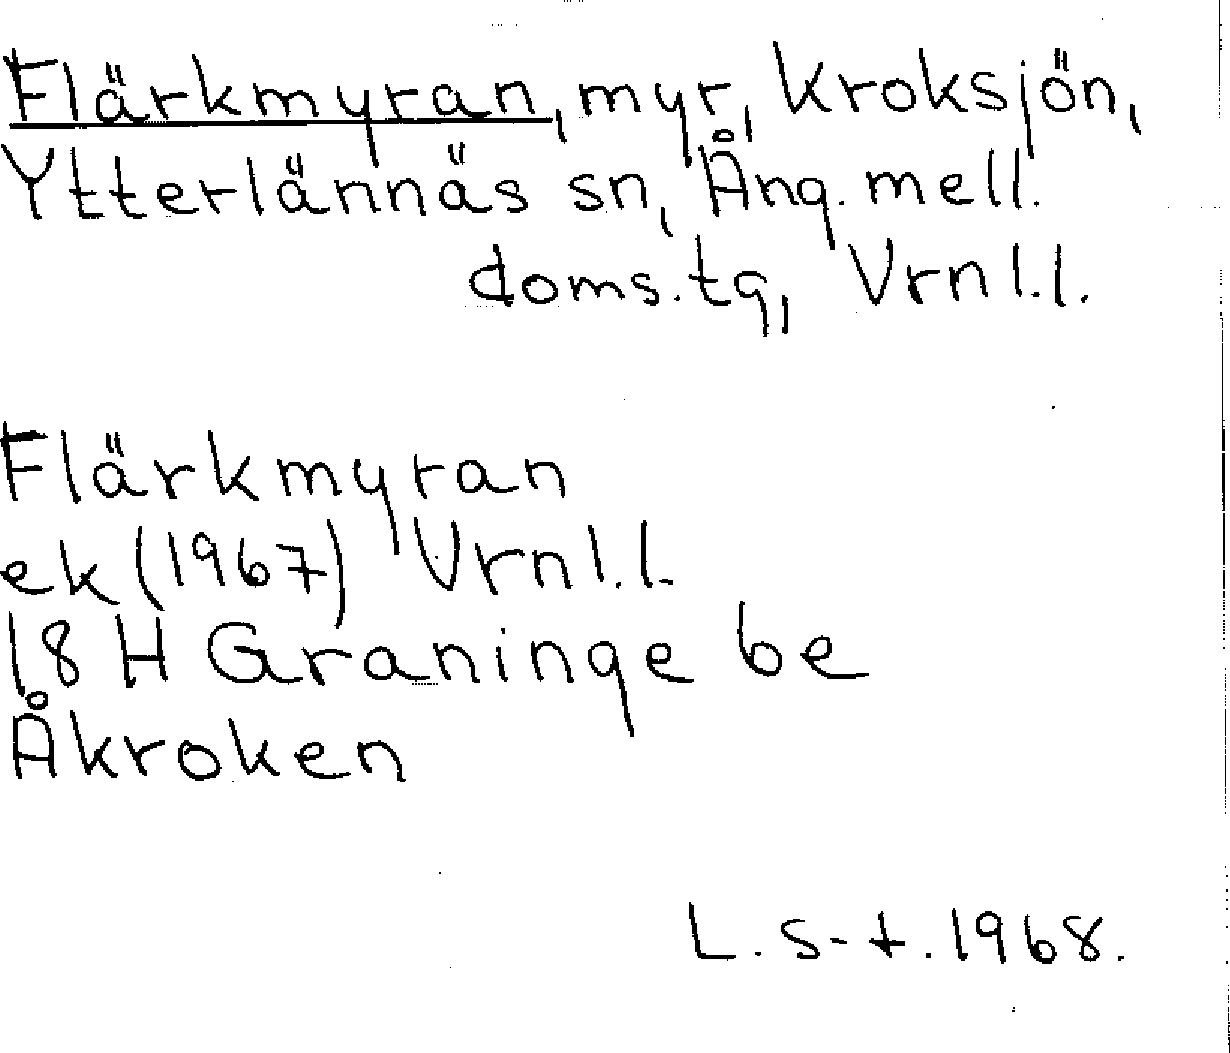 Flärkmyran, myr, Kroksjön,
Ytterlännäs sn, Ång. mell.
doms.tg, Vrnl.l.
Flärkmyran
ek (1967) Vrnl.l.
18 H Graninge be
Åkroken
L. S-t. 1968.